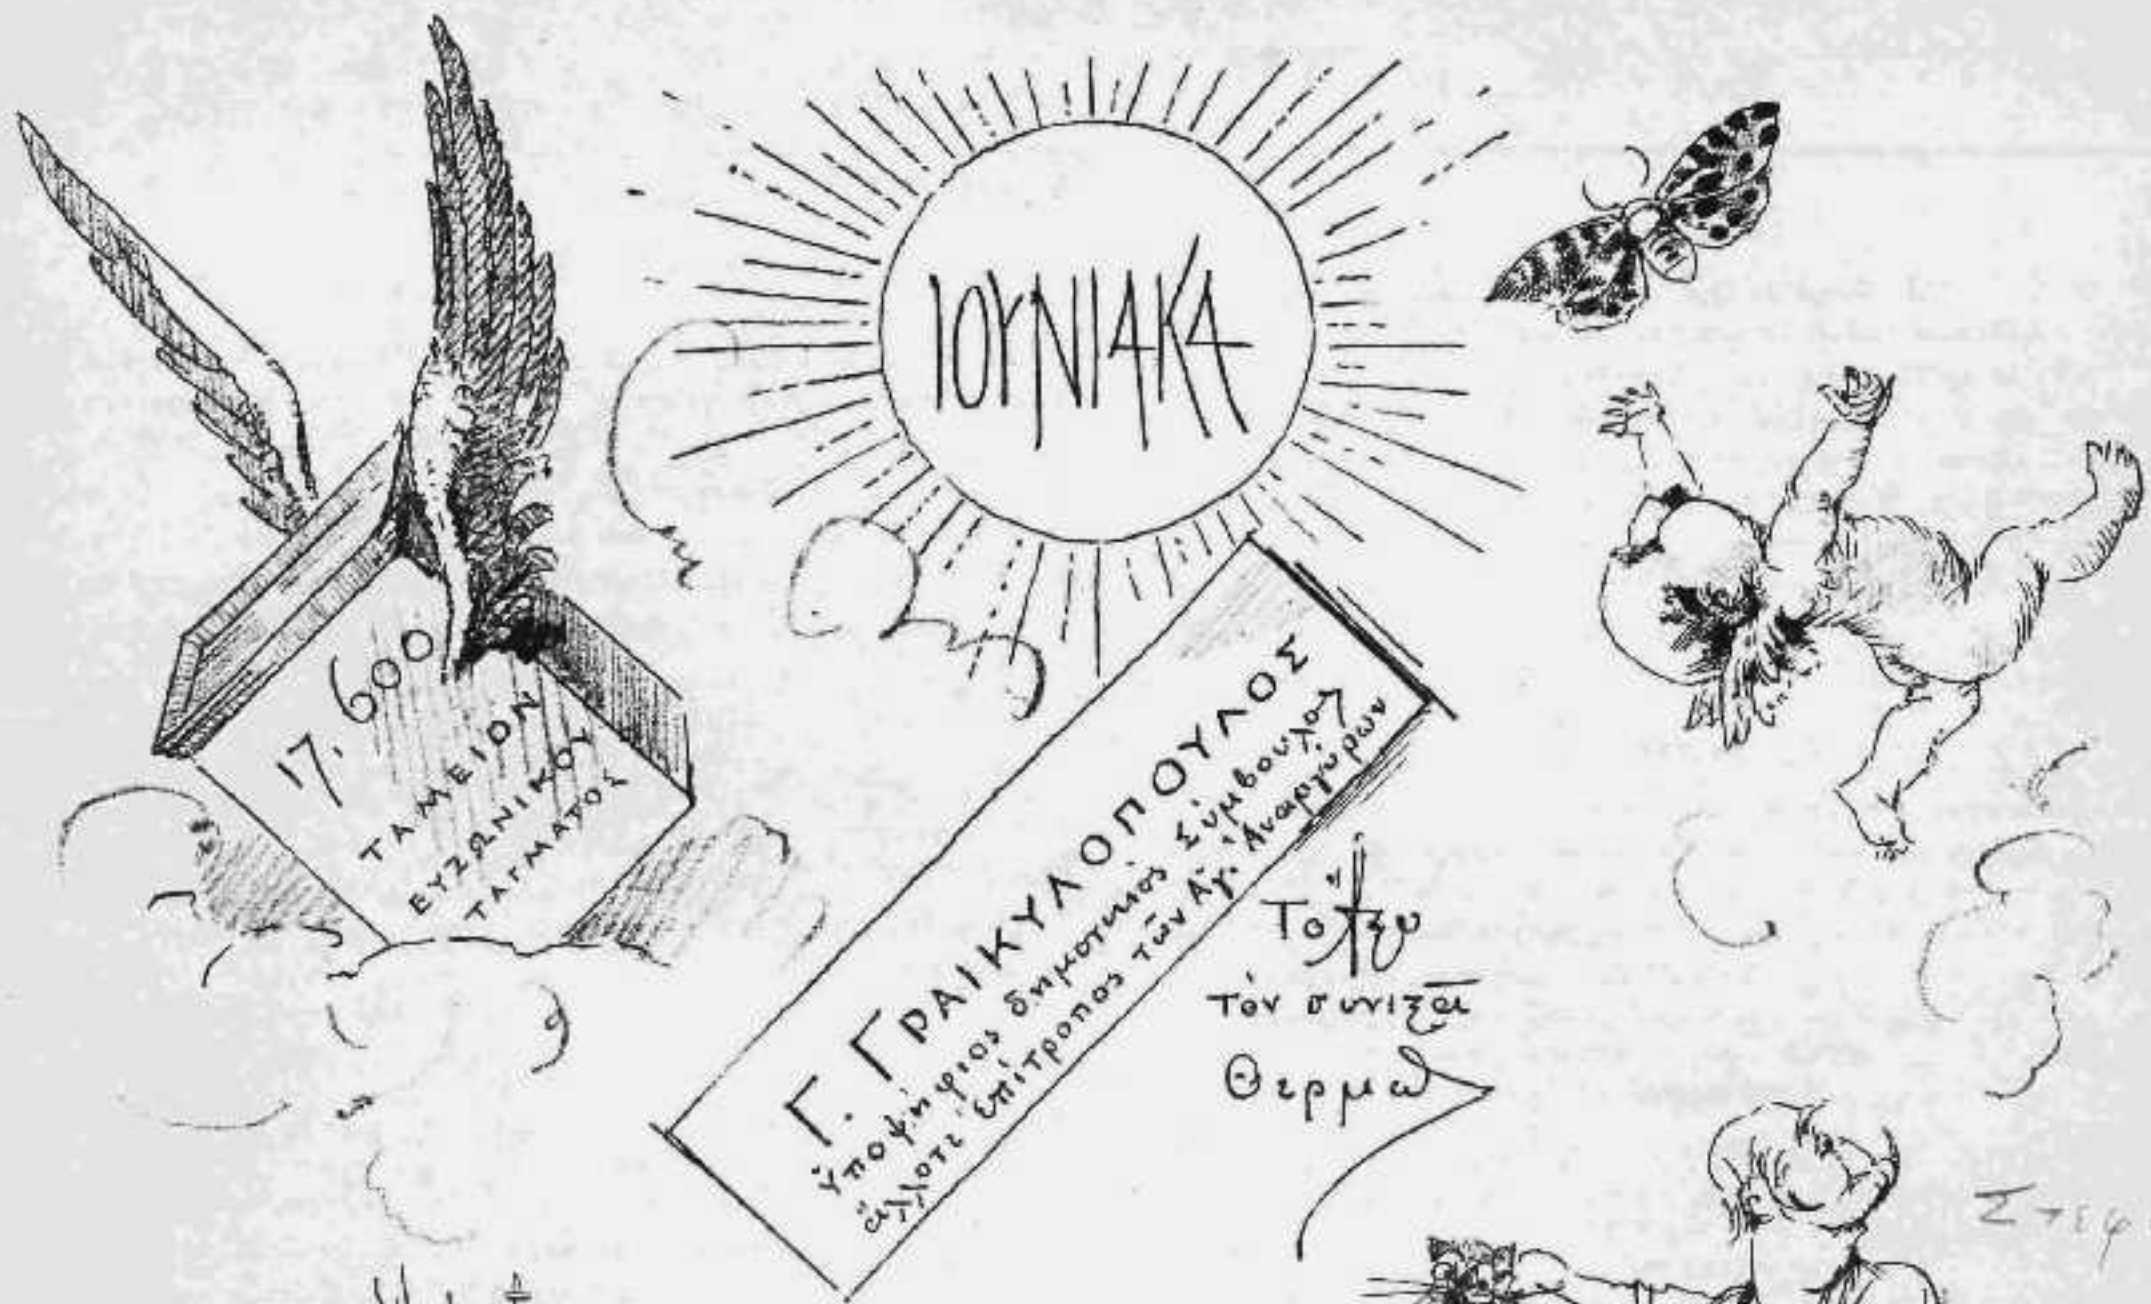 ΙΟΥΝΙΑΚΑ
17.600
ΤΑΜΕΙΟΝ
ΕΥΖΩΝΙΚΟΥ
ΤΑΓΜΑΤΟΣ
Γ. ΓΡΑΙΚΥΛΟΠΟΥΛΟΣ
ὑποψήφιος δημοτικὸς Σύμβουλος
ἄλλοτε ἐπίτροπος τῶν Ἁγ. Ἀναργύρων
Το
τὸν συνιστᾷ
Θερμῶς
Στεφ